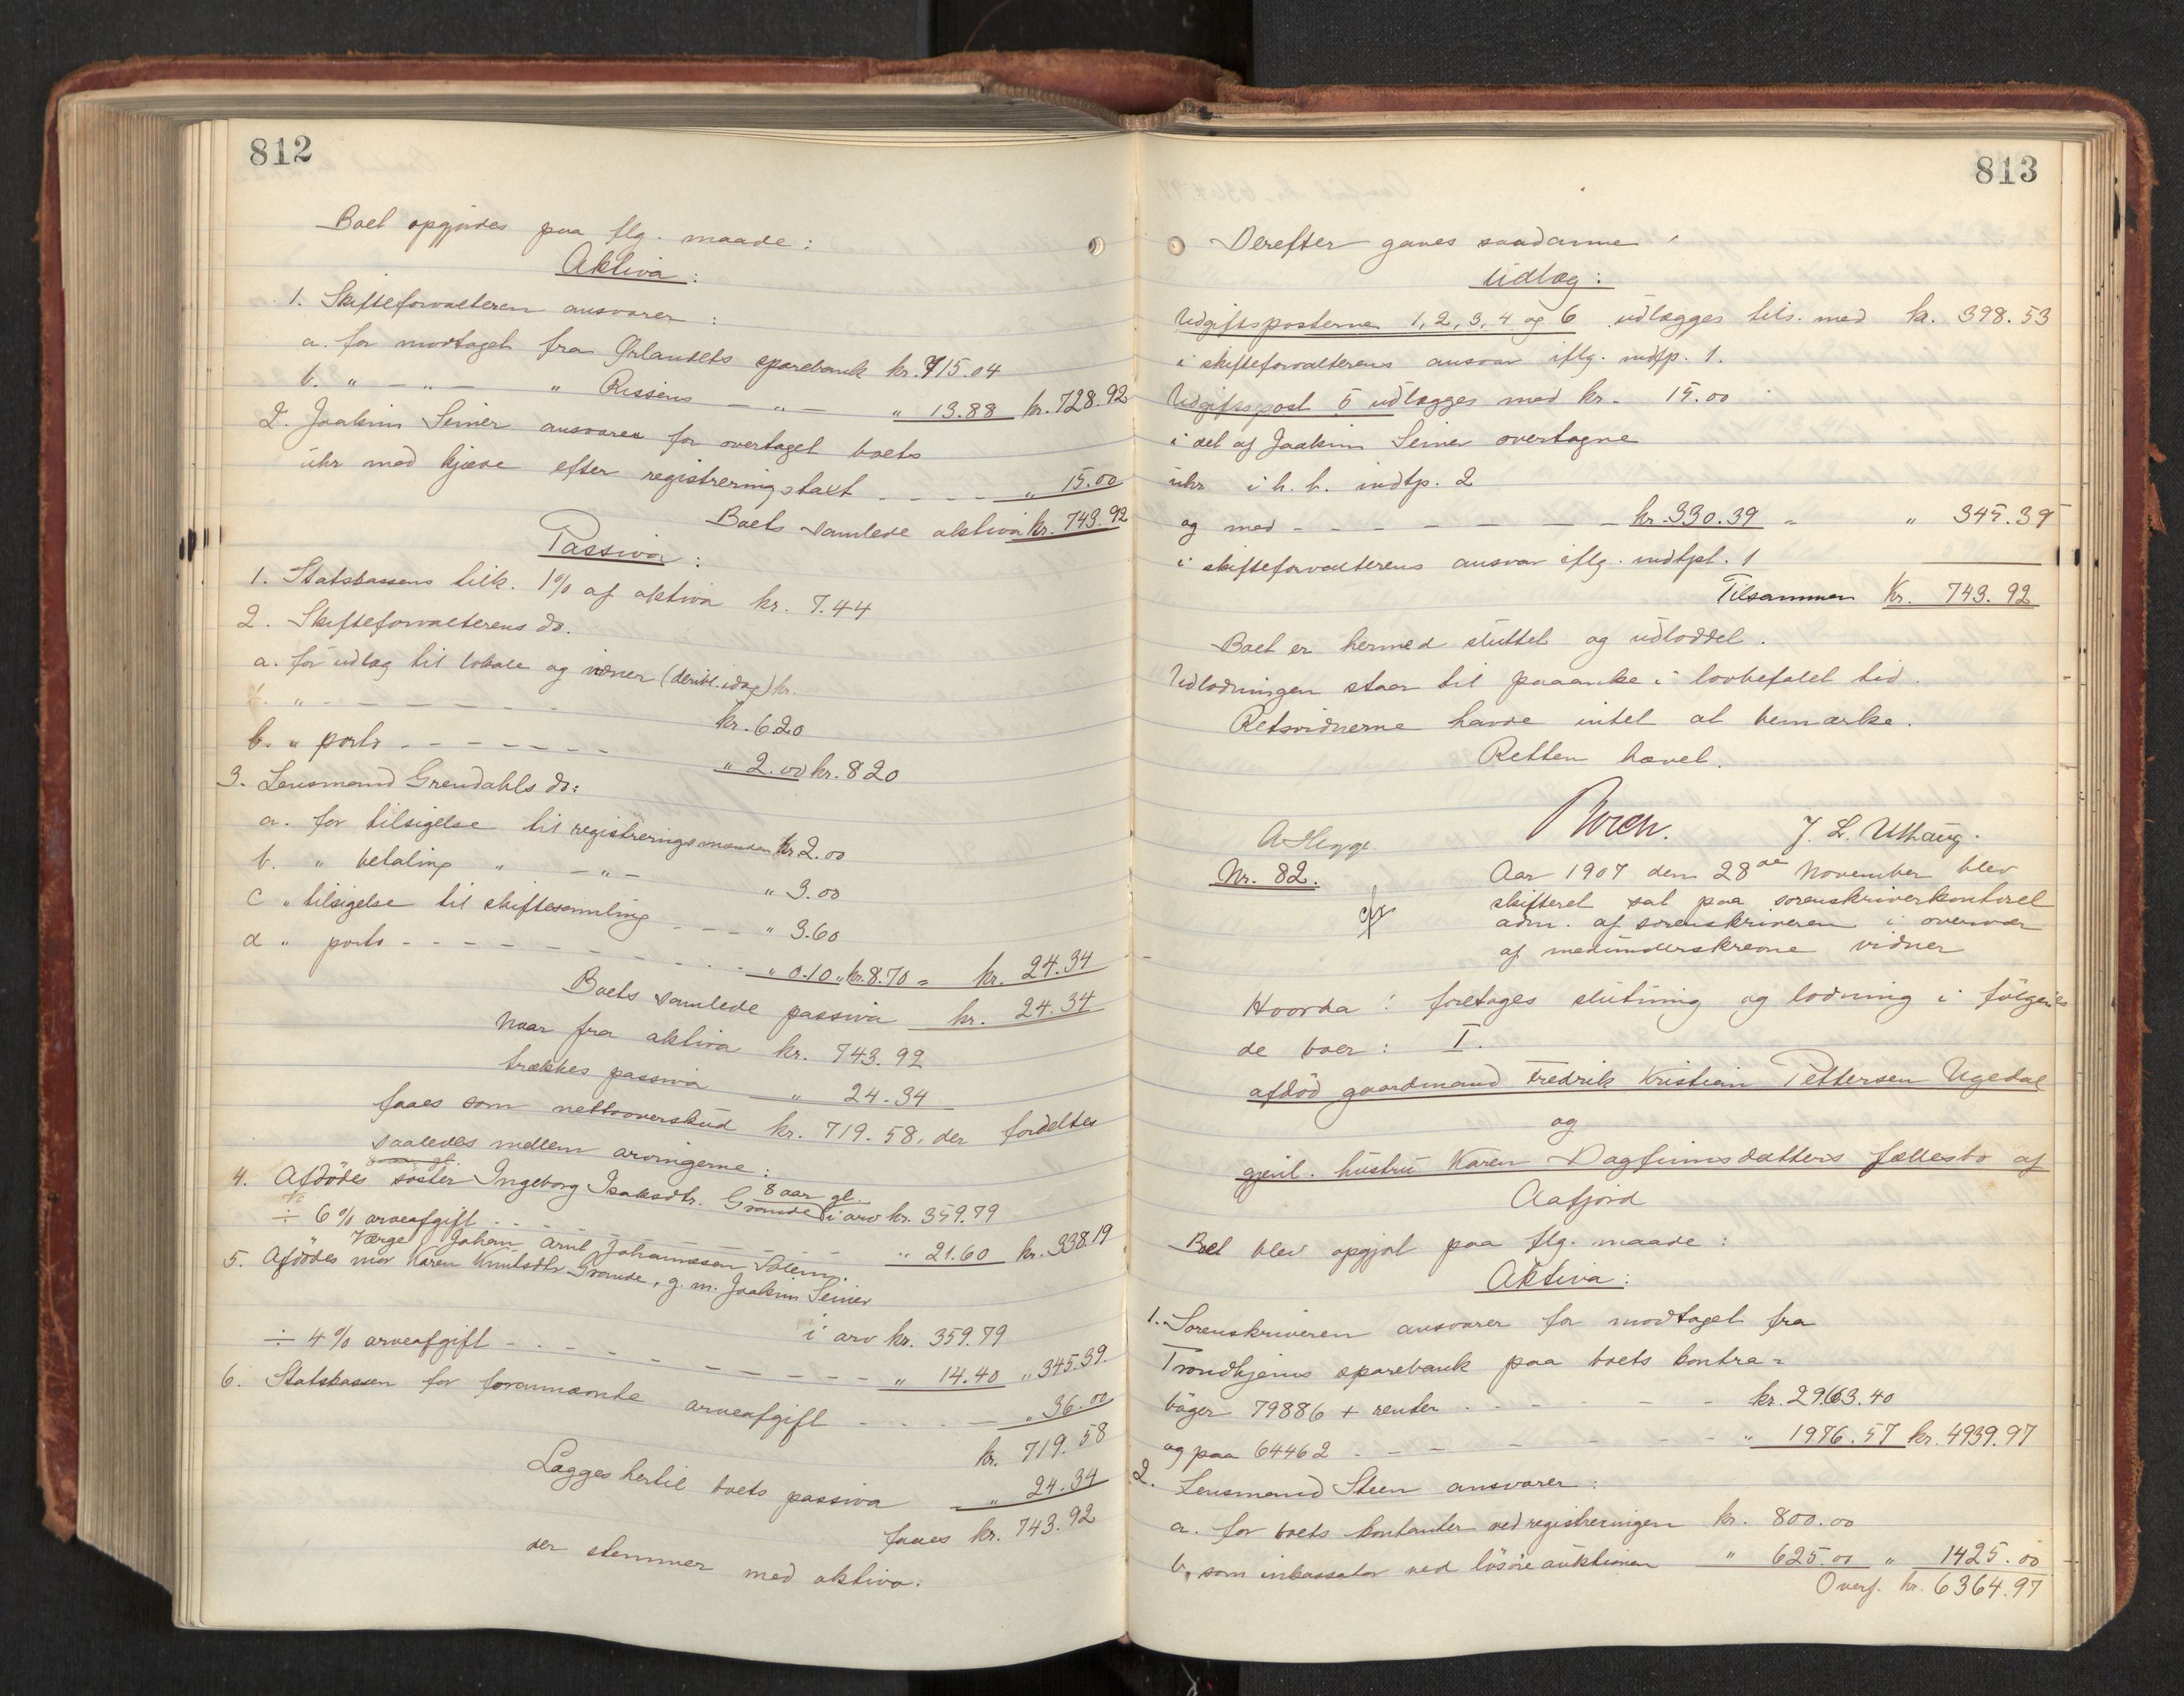 812
Boet opgjordes paa flg. maade:
Aktiva:
1. Skifteforvalteren ansvarer:
a. for modtaget fra Ørlandets sparebank kr. 715.04
b. " — " — " Rissens — " — " 13.88 kr. 728.92
2. Joakim Seiner ansvarer for overtaget boets
uhr med kjæde efter registreringstaxt - - - - " 15.00
Boets samlede aktiva kr. 743.92
Passiva:
1. Statskassens tilk. 1% af aktiva kr. 7.44
2. Skifteforvalterens do.
a. for udlæg til lokale og vidner (deribl. idag) kr.
kr. 6.20
b. " porto - - - - - - - " 2.00 kr. 8.20
3. Lensmand Grendahls do:
a. for tilsigelse til registreringsmænden kr 2.00
b. " betaling " — " — " 3.00
c " tilsigelse til skiftesamling - - - " 3.60
d " porto - - - - - - - - - " 0.10 " kr. 8.70 = kr. 24.34
Boets samlede passiva kr. 24.34
Naar fra aktiva kr. 743.92
trækkes passiva " 24.34
faaes som nettooverskud kr. 719.58, der fordeltes
saaledes mellem arvingerne:
8 aar gl.
4. Afdødes søster Ingeborg Isaksdtr. Grande i arv kr. 359.79
÷ 6% arveafgift - - - - - - " 21.60 kr. 338.19
Værge Johan Arnt Johannesen Solem.
5. Afdødes mor Karen Knutsdtr. Grande, g. m. Joakim Seiner
i arv kr. 359.79
÷ 4% arveafgift - - - - - - - - - " 14.40 " 345.39.
6. Statskassen for forannævnte arveafgift - - - - " 36.00
kr. 719.58
Lægges hertil boets passiva " 24.34
faaes kr. 743.92
der stemmer med aktiva.
813
Derefter gaves saadanne
Udlæg:
Udgiftsposterne 1, 2, 3, 4 og 6 udlægges tils. med kr. 398.53
i skifteforvalterens ansvar iflg. indtp. 1.
Udgiftspost 5 udlægges med kr. 15.00
i det af Joakim Seiner overtagne
uhr i h. t. indtp. 2
og med - - - - - - - - kr. 330.39 " " 345.39
i skifteforvalterens ansvar iflg. indtpt. 1
Tilsammen kr. 743.92
Boet er hermed sluttet og udloddet.
Udlodningen staar til paaanke i lovbefalet tid.
Retsvidnerne havde intet at bemærke.
Retten hævet.
A Hegge. J. L. Uthaug.
Nr. 82. Aar 1907 den 28de November blev
skifteret sat paa sorenskriverkontoret
adm. af sorenskriveren i overvær
af medunderskrevne vidner
Hvorda: foretages slutning og lodning i følgen-
de boer: I.
afdød gaardmand Fredrik Kristian Pettersen Ugedal
og
gjenl. hustru Karen Dagfinnsdatters fællesbo af
Aafjord
Boet blev opgjort paa flg. maade:
Aktiva:
1. Sorenskriveren ansvarer for modtaget fra
Trondhjems sparebank paa boets kontra-
bøger 79886 + renter - - - - - - kr. 2963.40
og paa 64462 - - - - - - - - " 1976.57 kr. 4939.97
2. Lensmand Steen ansvarer:
a. for boets kontanter ved registreringen kr. 800.00
b. som inkassator ved løsøreauktionen " 625.00 " 1425.00
Overf. kr. 6364.97